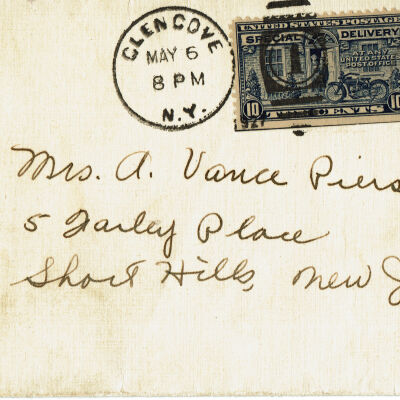 GLEN COVE
MAY 6
8 PM
N.Y.
UNITED STATES POSTAGE
SPECIAL DELIVERY
AT ANY
UNITED STATES
POST OFFICE
10 CENTS 10
Mrs. A. Vance Piers
5 Farley Place
Short Hills, New J